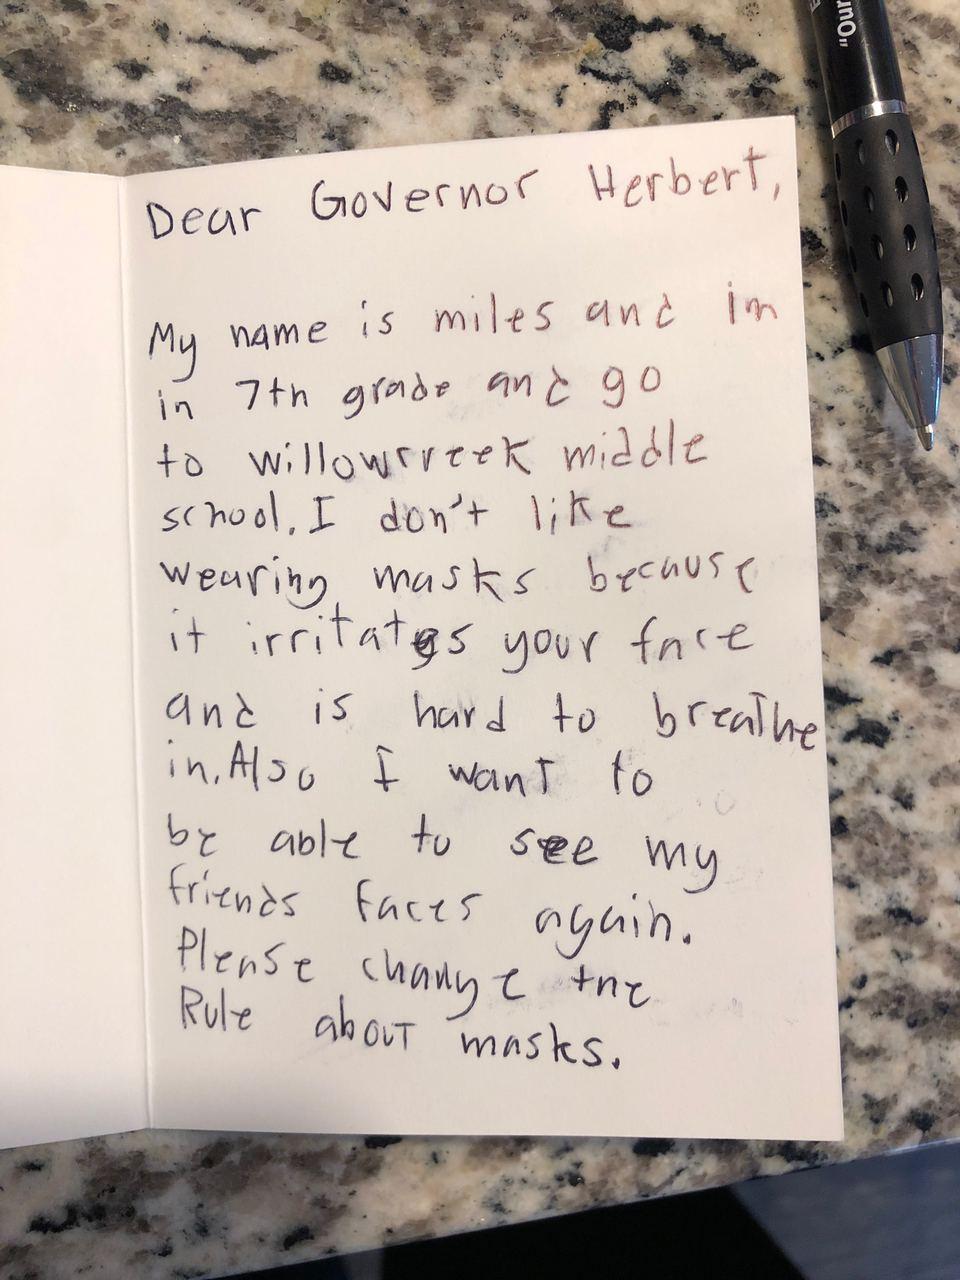 Dear Governor Herbert,
My name is miles and im
in 7th grade and go
to willowcreek middle
school. I don't like
wearing masks because
it irritates your face
and is hard to breathe
in. Also I want to
be able to see my
friends faces again.
Please change the
Rule about masks.
"Our